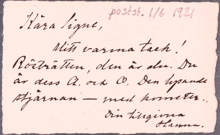 postst. 1/6 1921
Kära Signe,
Mitt varma tack!
Rösträtten, den är du. Du
är dess A. och O. Den lysande
stjärnan — med kometer..
Din tillgivna
Hanna.